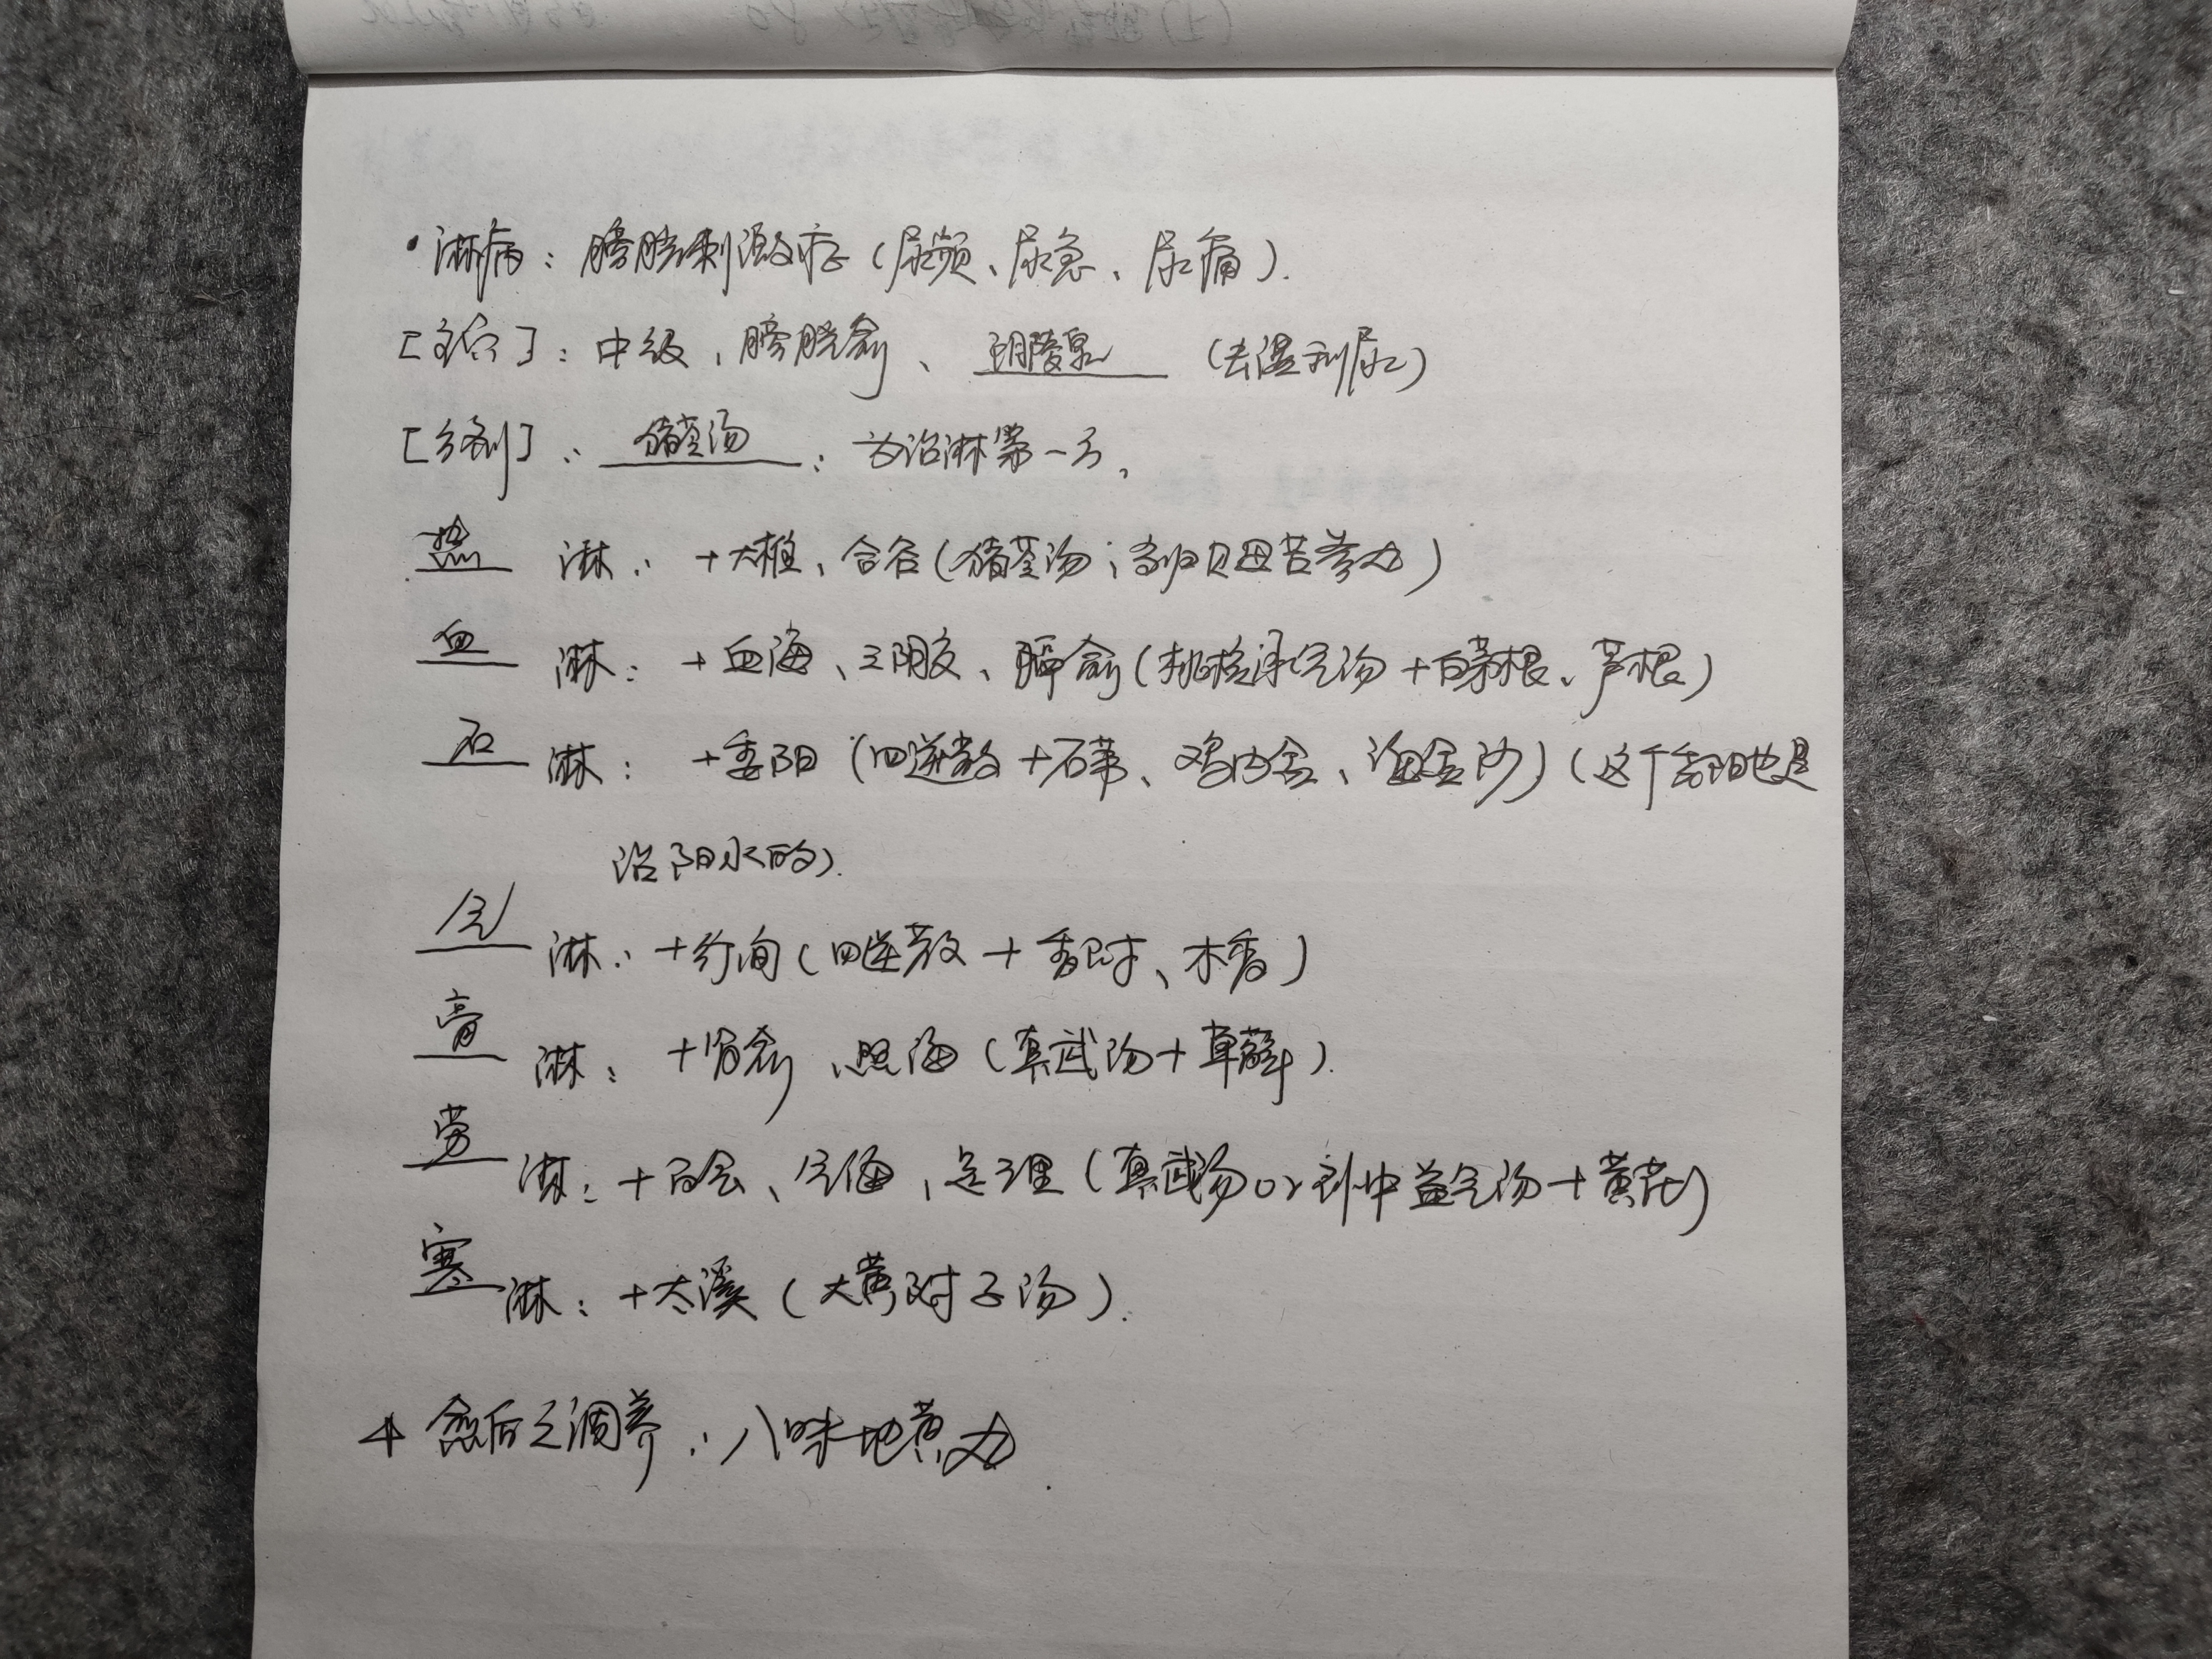 ·淋病：膀胱刺激症（尿频、尿急、尿痛）.
[主穴]：中级、膀胱俞、阴陵泉（去湿利尿）
[方剂]：猪苓汤：为治淋第一方,
热淋：+大椎、合谷（猪苓汤；当归贝母苦参丸）
血淋：+血海、三阴交、膈俞（桃核承气汤+白茅根、芦根）
石淋：+委阳（四逆散+石苇、鸡内金、海金沙）（这个委阳也是
治阳水的).
气淋：+行间（四逆散+香附、木香）
膏淋：+肾俞、照海（真武汤+草薢）.
劳淋：+百会、气海、足三里（真武汤or补中益气汤+黄芪）
寒淋：+太溪（大黄附子汤）.
愈后之调养：八味地黄丸.